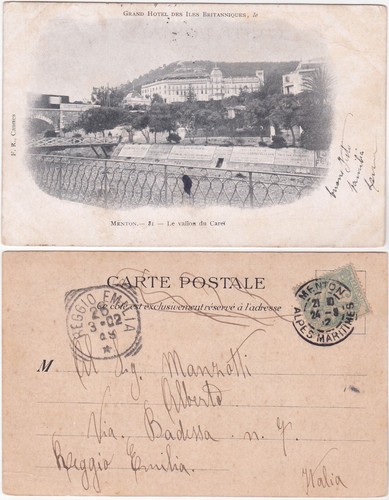 GRAND HOTEL DES ILES BRITANNIQUES, le
F. R., CANNES
MENTON. — 31 — Le vallon du Careï
CARTE POSTALE
Ce côté est exclusivement réservé à l'adresse
REGGIO EMILIA
3-02
MENTON
ALPES MARITIMES
M
Sig. Manzotti
Alberto
Via. Badessa n. 7
Reggio Emilia.
Italia